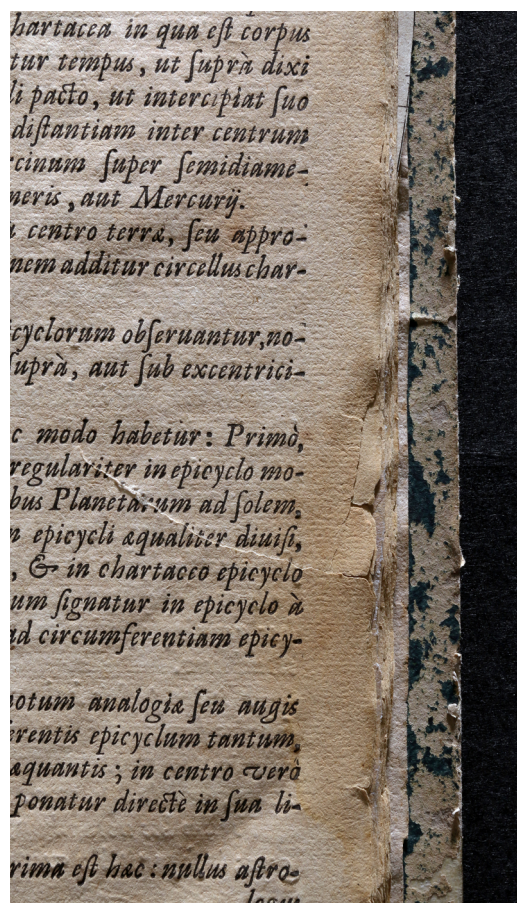 hartacea in qua eſt corpus
tur tempus, ut ſuprà dixi
li pacto, ut intercipiat ſuo
diſtantiam inter centrum
rcinum ſuper ſemidiame-
neris, aut Mercurij.
centro terræ, ſeu appro-
nem additur circellus char-
icyclorum obſeruantur, no-
ſuprà, aut ſub excentrici-
c modo habetur: Primò,
regulariter in epicyclo mo-
bus Planetarum ad ſolem,
epicycli æqualiter diuiſi,
, & in chartaceo epicyclo
um ſignatur in epicyclo à
ad circumferentiam epicy-
notum analogiæ ſeu augis
erentis epicyclum tantum,
æquantis; in centro verò
ponatur directè in ſua li-
rima eſt hæc: nullus aſtro-